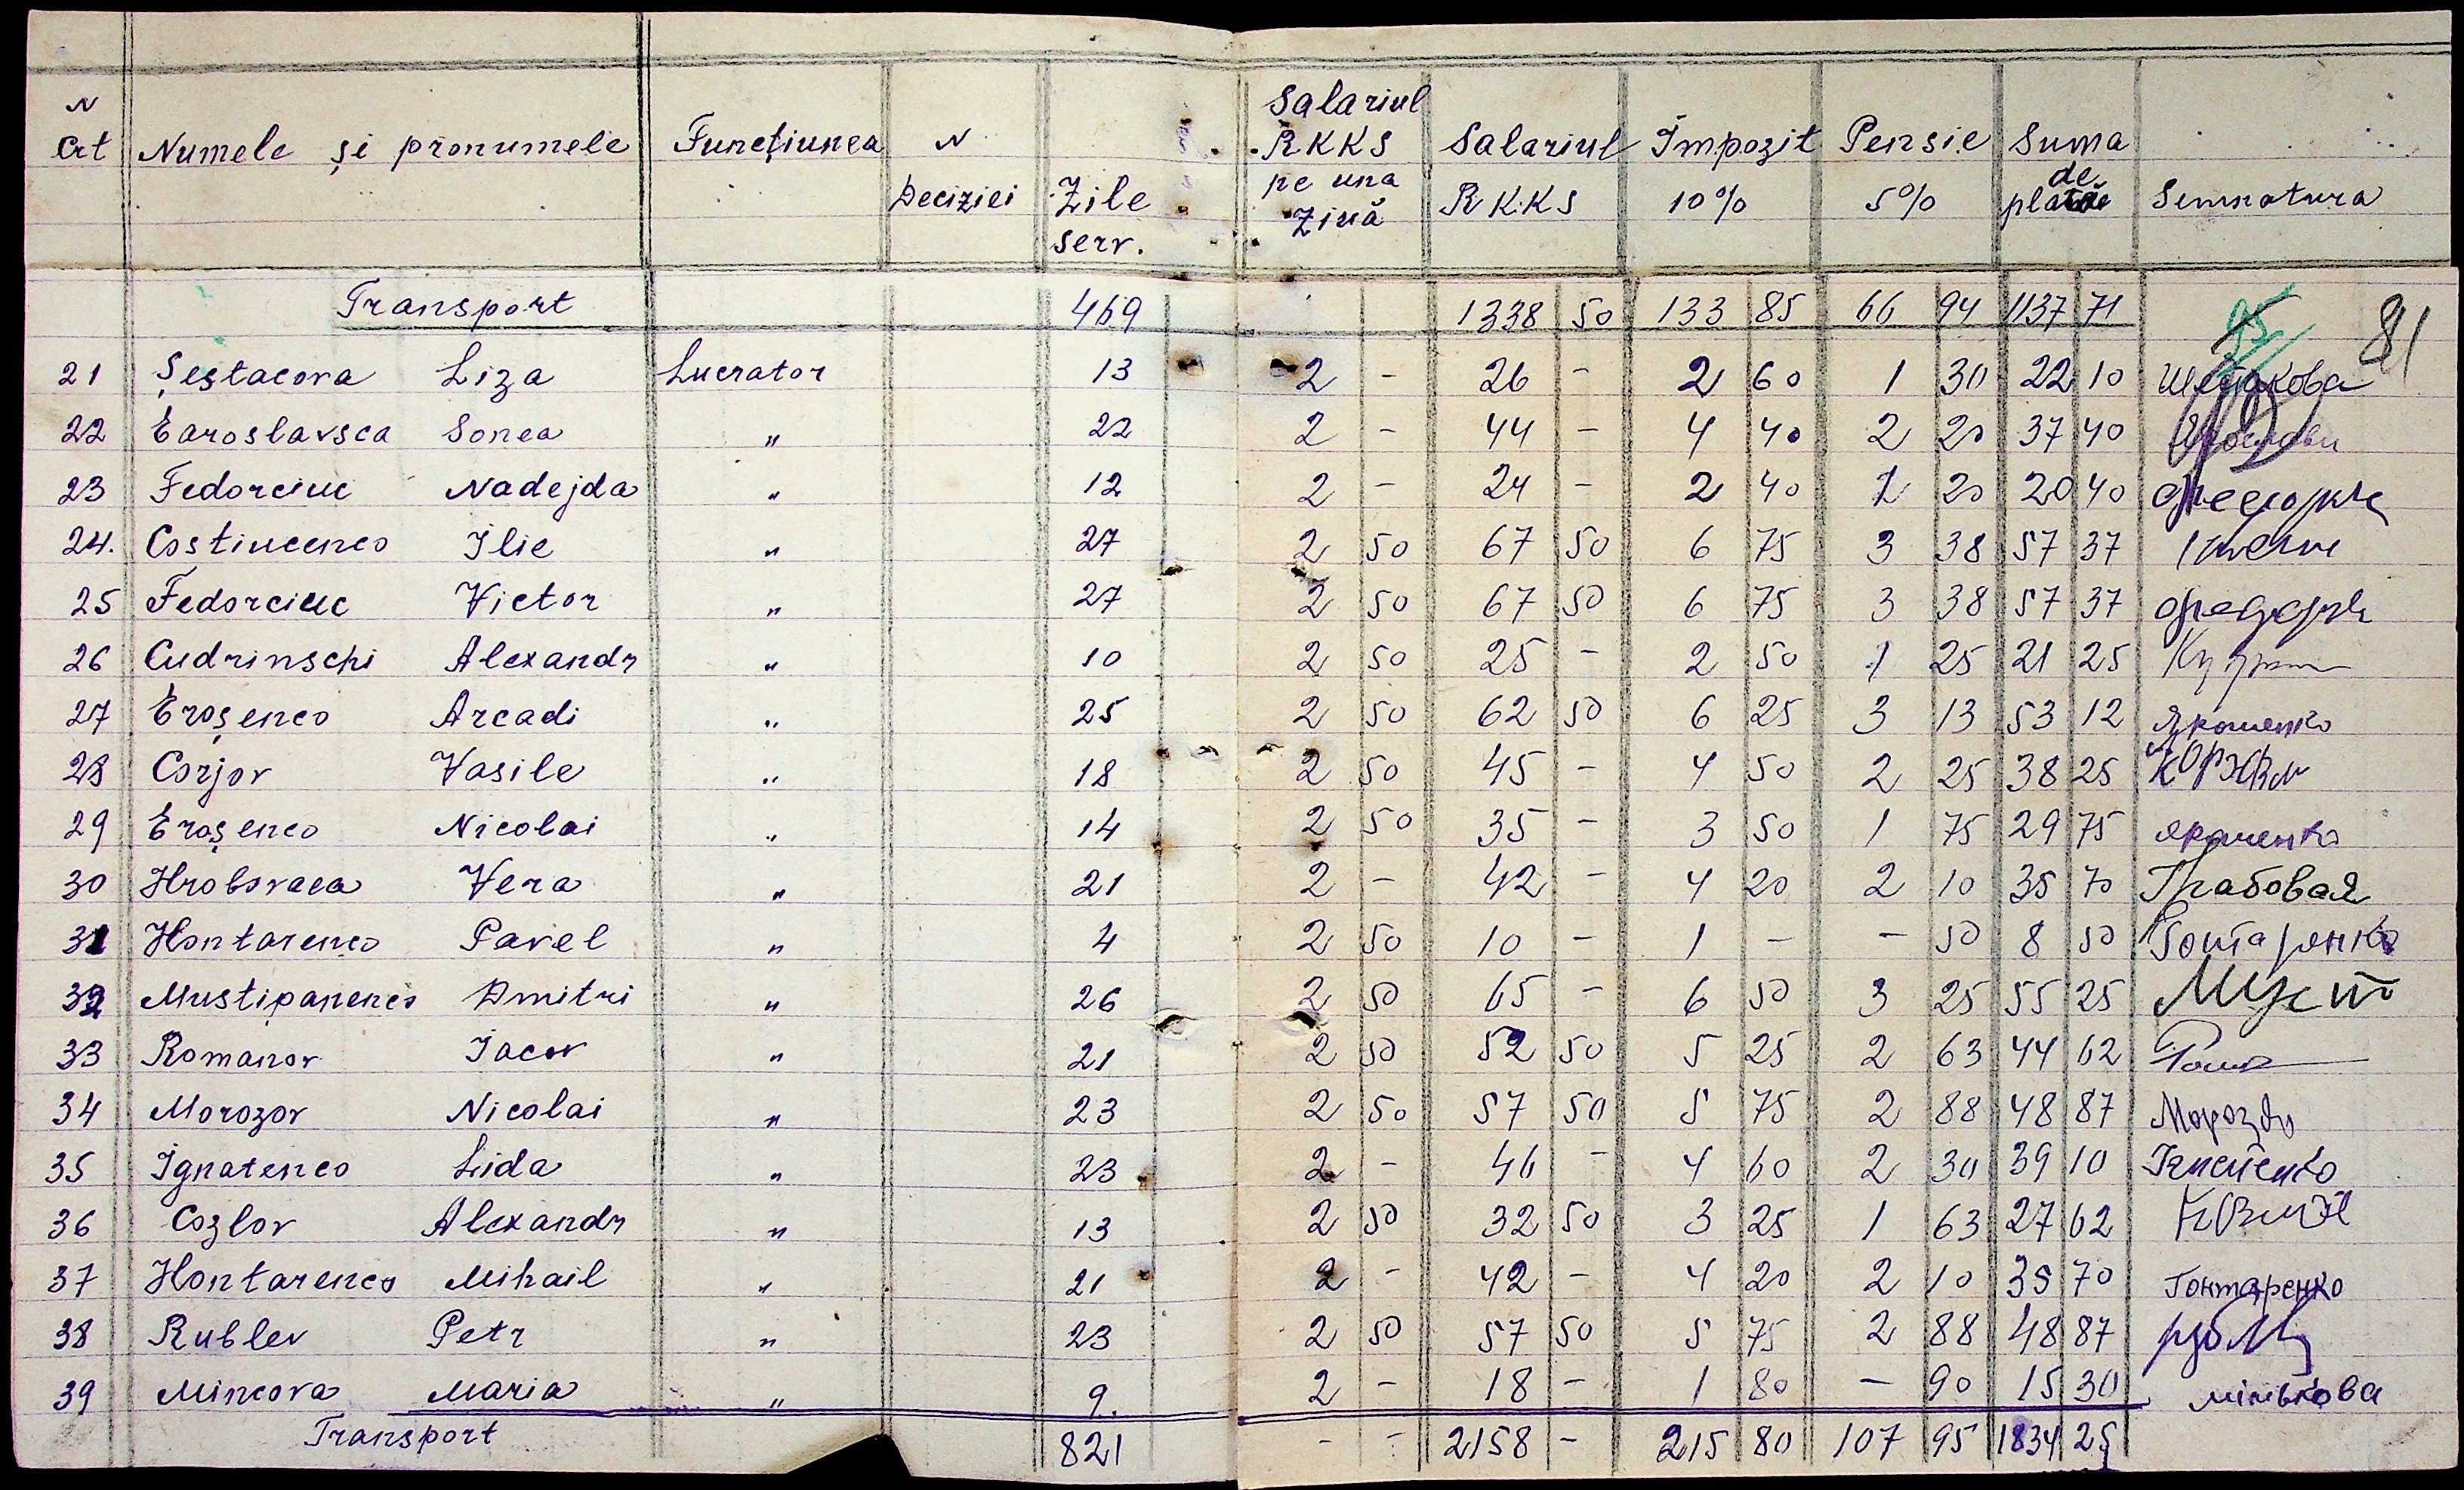 N Crt Numele și pronumele Funcțiunea N Deciziei Zile serv. Salariul RKKS pe una zină Salariul RKKS Impozit 10% Pensie 5% Suma de plată Semnatura
Transport 469 1338 50 133 85 66 94 1137 71 95 81
21 Șestacova Liza Lucrator 13 2 - 26 - 2 60 1 30 22 10 Шестакова
22 Earoslavsca Sonea " 22 2 - 44 - 4 40 2 20 37 40
23 Fedorciuc Nadejda " 12 2 - 24 - 2 40 1 20 20 40
24. Costiucenco Ilie " 27 2 50 67 50 6 75 3 38 57 37
25 Fedorciuc Victor " 27 2 50 67 50 6 75 3 38 57 37
26 Cudrinschi Alexandr " 10 2 50 25 - 2 50 1 25 21 25
27 Eroșenco Arcadi " 25 2 50 62 50 6 25 3 13 53 12 Ярошенко
28 Corjov Vasile " 18 2 50 45 - 4 50 2 25 38 25
29 Eroșenco Nicolai " 14 2 50 35 - 3 50 1 75 29 75 Ярошенко
30 Hrobovaea Vera " 21 2 - 42 - 4 20 2 10 35 70 Грабовая
31 Hontarenco Pavel " 4 2 50 10 - 1 - - 50 8 50 Гонтаренко
32 Mustipanenco Dmitri " 26 2 50 65 - 6 50 3 25 55 25 Муст
33 Romanov Iacov " 21 2 50 52 50 5 25 2 63 44 62
34 Morozov Nicolai " 23 2 50 57 50 5 75 2 88 48 87 Морозов
35 Ignatenco Lida " 23 2 - 46 - 4 60 2 30 39 10
36 Cozlov Alexandr " 13 2 50 32 50 3 25 1 63 27 62
37 Hontarenco Mihail " 21 2 - 42 - 4 20 2 10 35 70 Гонтаренко
38 Rublev Petr " 23 2 50 57 50 5 75 2 88 48 87
39 Mincova Maria " 9. 2 - 18 - 1 80 - 90 15 30 Мінькова
Transport 821 - - 2158 - 215 80 107 95 1834 25